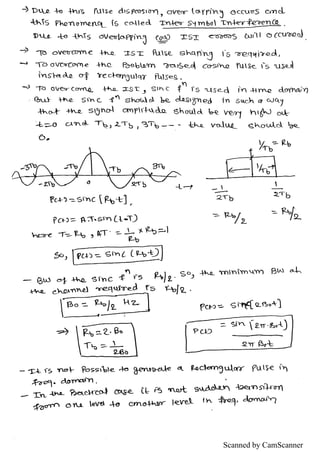 → Due to this Pulse dispersion, over lapping occurs and
this Phenomena is called Inter Symbol Interference.
Due to this overlapping (or) ISI errors will occured.
→ To overcome the ISI Pulse sharing is required.
→ To overcome the Problem raised cosine Pulse is used
instade of rectangular Pulses.
→ To over come the ISI, sinc fⁿ is used in time domain
But the sinc fⁿ should be designed in such a way
that the signal amplitude should be very high at
t=0 and Tb, 2Tb, 3Tb --- the value should be
0.
1/Tb = Rb
-3Tb -Tb Tb 3Tb
1/Tb
-2Tb 0 2Tb t→
-1/2Tb 1/2Tb
P(t) = sinc [Rb t]
= Rb/2 = Rb/2
P(t) = A.T. sin (t.T)
here T = Rb, AT = 1/Rb × Rb = 1
So, P(t) = sinc (Rb t)
- BW of the sinc fⁿ is Rb/2. So, the minimum BW of
the channel required is Rb/2.
B0 = Rb/2 HZ
P(t) = sinc[2B0t]
⇒ Rb = 2.B0
Tb = 1/2B0
P(t) = sin [2π.B0t] / 2π B0t
- It is not Possible to generate a Rectangular Pulse in
freq. domain.
- In the Practical case it is not sudden transition
from one level to another level in freq. domain
Scanned by CamScanner